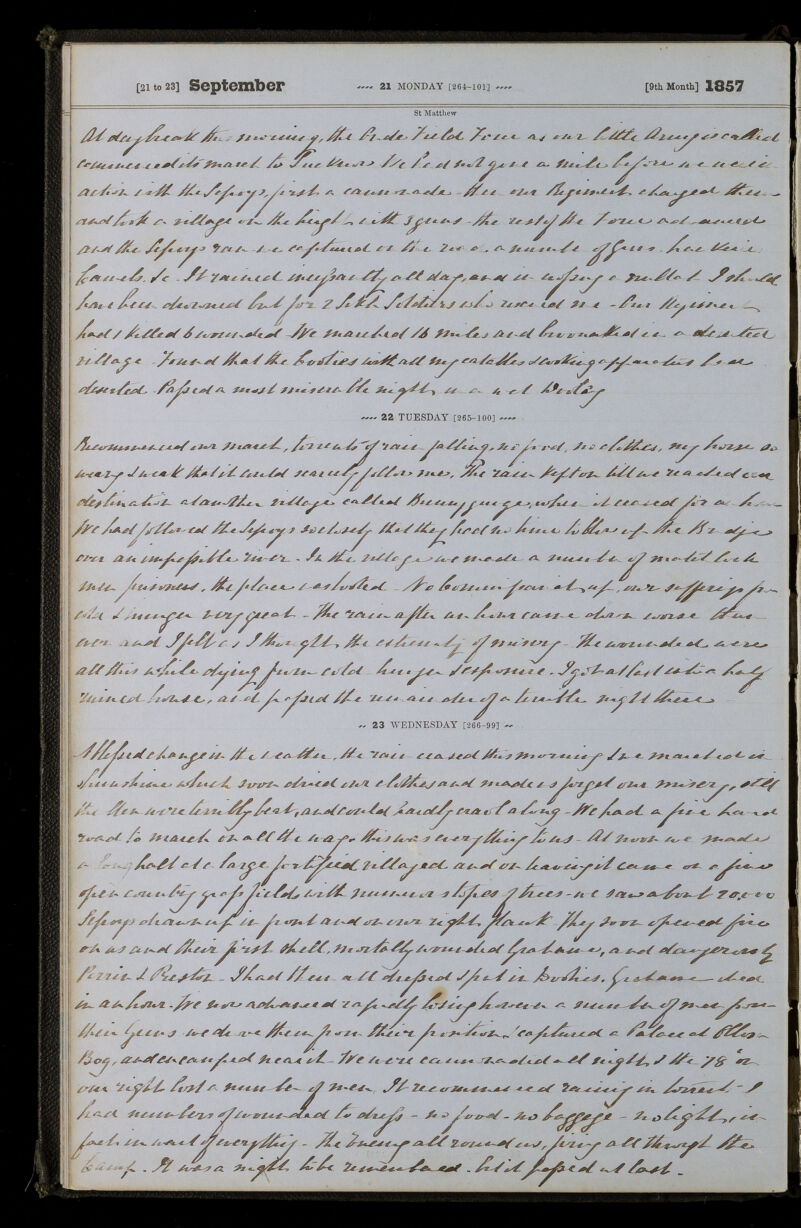 [21 to 23] September 21 MONDAY [264-101] [9th Month] 1857
St Matthew
At daybreak this morning, the Oude Field Force as our little Army is called
commenced its march to Lucknow We had not gone a mile before we were in
action with the Sepoys, first a cannonade then our Regiment charged them
and took a village on the height with 3 guns the rest of the Force advanced
and the Sepoys ran we captured on the road a number of Guns
Camels &c It rained incessantly all day, and in crossing a nullah I should
have been drowned but for 2 Sikh Soldiers who rescued me - Our Regiment
had 1 killed 6 wounded We marched 16 miles and bivouaked in a deserted
village Found that the Coolies with all my eatables & cooking apparatus had
deserted. Passed a most miserable night, in a wet
22 TUESDAY [265-100]
Recommenced our march, torrents of rain falling, no food, no clothes, my horse so
weary & weak that it could scarcely follow me, The rain kept on till we reached our
destination at another village called Bunnygunge, when it ceased for an hour
We had followed the Sepoys so closely that they had no time to blow up the Bridge
over an impassible river - In the village we made a number of
men prisoners, the place was looted No up, our sufferings from
cold & hunger very great - The rain after an hour came down worse than
ever and I felt as I thought, the extremity of misery - The wounded were
all this while dying from cold hunger & exposure. I got at last into a half
ruined house, and passed the remainder of a terrible night there
23 WEDNESDAY [266-99]
A blessed change in the weather, the rain ceased this morning & we marched in
Sunshine which soon dried our clothes and made us forget our misery, still
the Men were terribly beat, and could hardly crawl along - We had a fine hard
road to march on all the way & this was everything to us - At noon we made
a long halt at a large fortified village and on leaving it came on a fine
open country grass fields, with numerous of trees - we saw about 20,000
Sepoys drawn up in front and on our right flank They soon opened fire
on us and their first shell, mortally wounded Grahame, and dangerously
Perrin & Preston - I had them all dressed & put in Doolies, Grahame died
in an hour. We now advanced rapidly losing however a number of men from
their Guns we drove them from their position, captured a Palace at
Bag, and encamped near it We were cannonaded all night, & the 78th on
our right lost a number of men It recommenced raining in torrents I
had numbers of wounded to dress - no food - no baggage - no lights, in
fact in want of everything - The Enemy all round us, firing all through the
Camp. It was a night to be remembered but it passed at last -